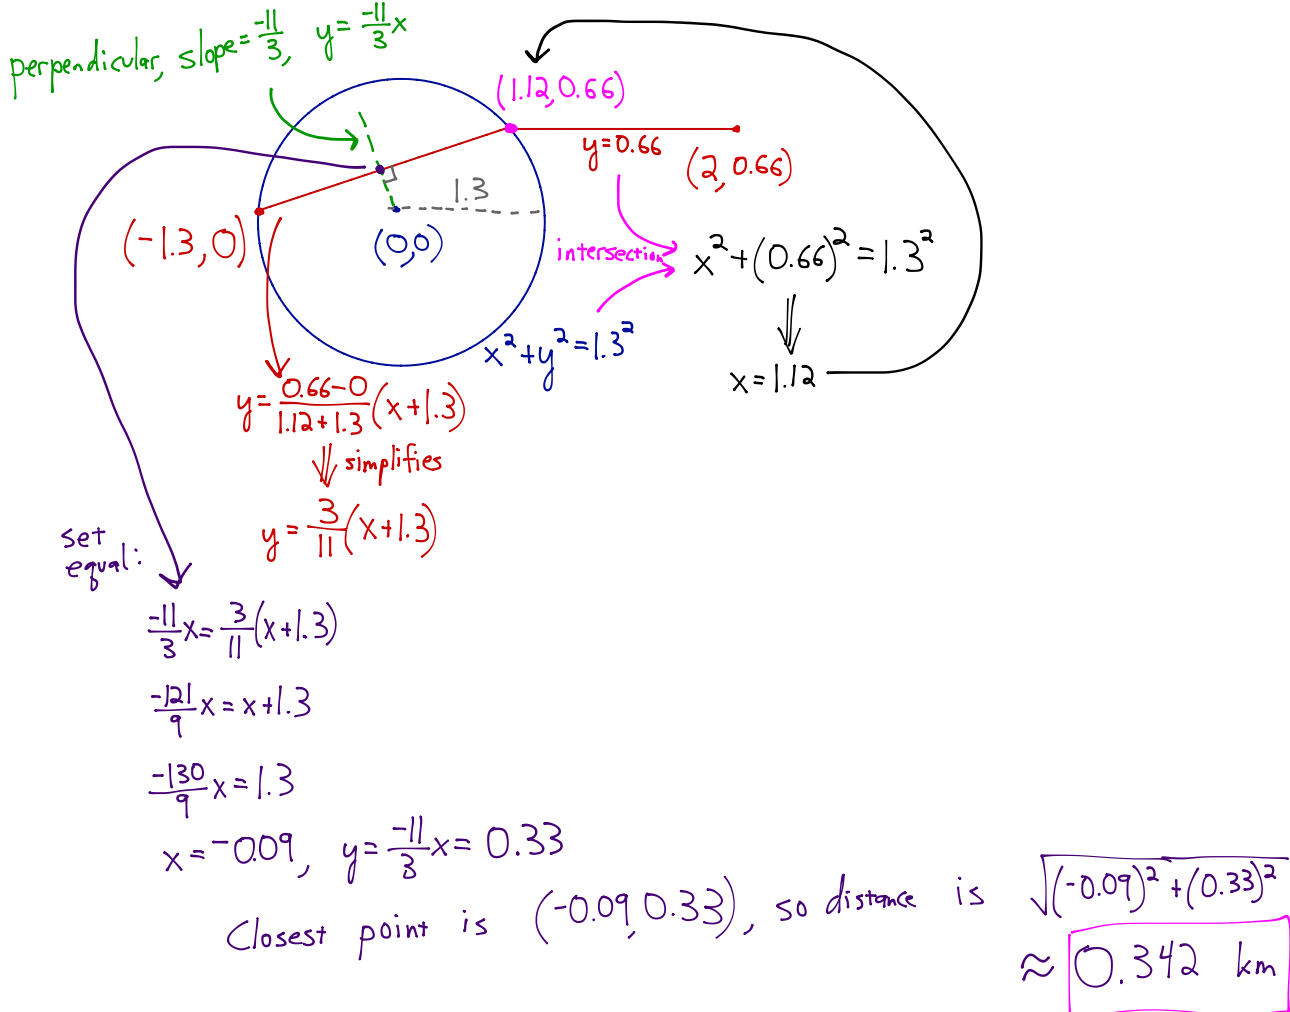 perpendicular, slope = -11/3, y = -11/3 x
(1.12, 0.66)
y = 0.66
(2, 0.66)
1.3
(-1.3, 0)
(0,0)
intersection
x² + (0.66)² = 1.3²
x² + y² = 1.3²
x = 1.12
y = (0.66-0)/(1.12+1.3) (x+1.3)
simplifies
y = 3/11 (x+1.3)
set
equal:
-11/3 x = 3/11 (x+1.3)
-121/9 x = x+1.3
-130/9 x = 1.3
x = -0.09, y = -11/3 x = 0.33
Closest point is (-0.09, 0.33), so distance is √((-0.09)² + (0.33)²)
≈ 0.342 km